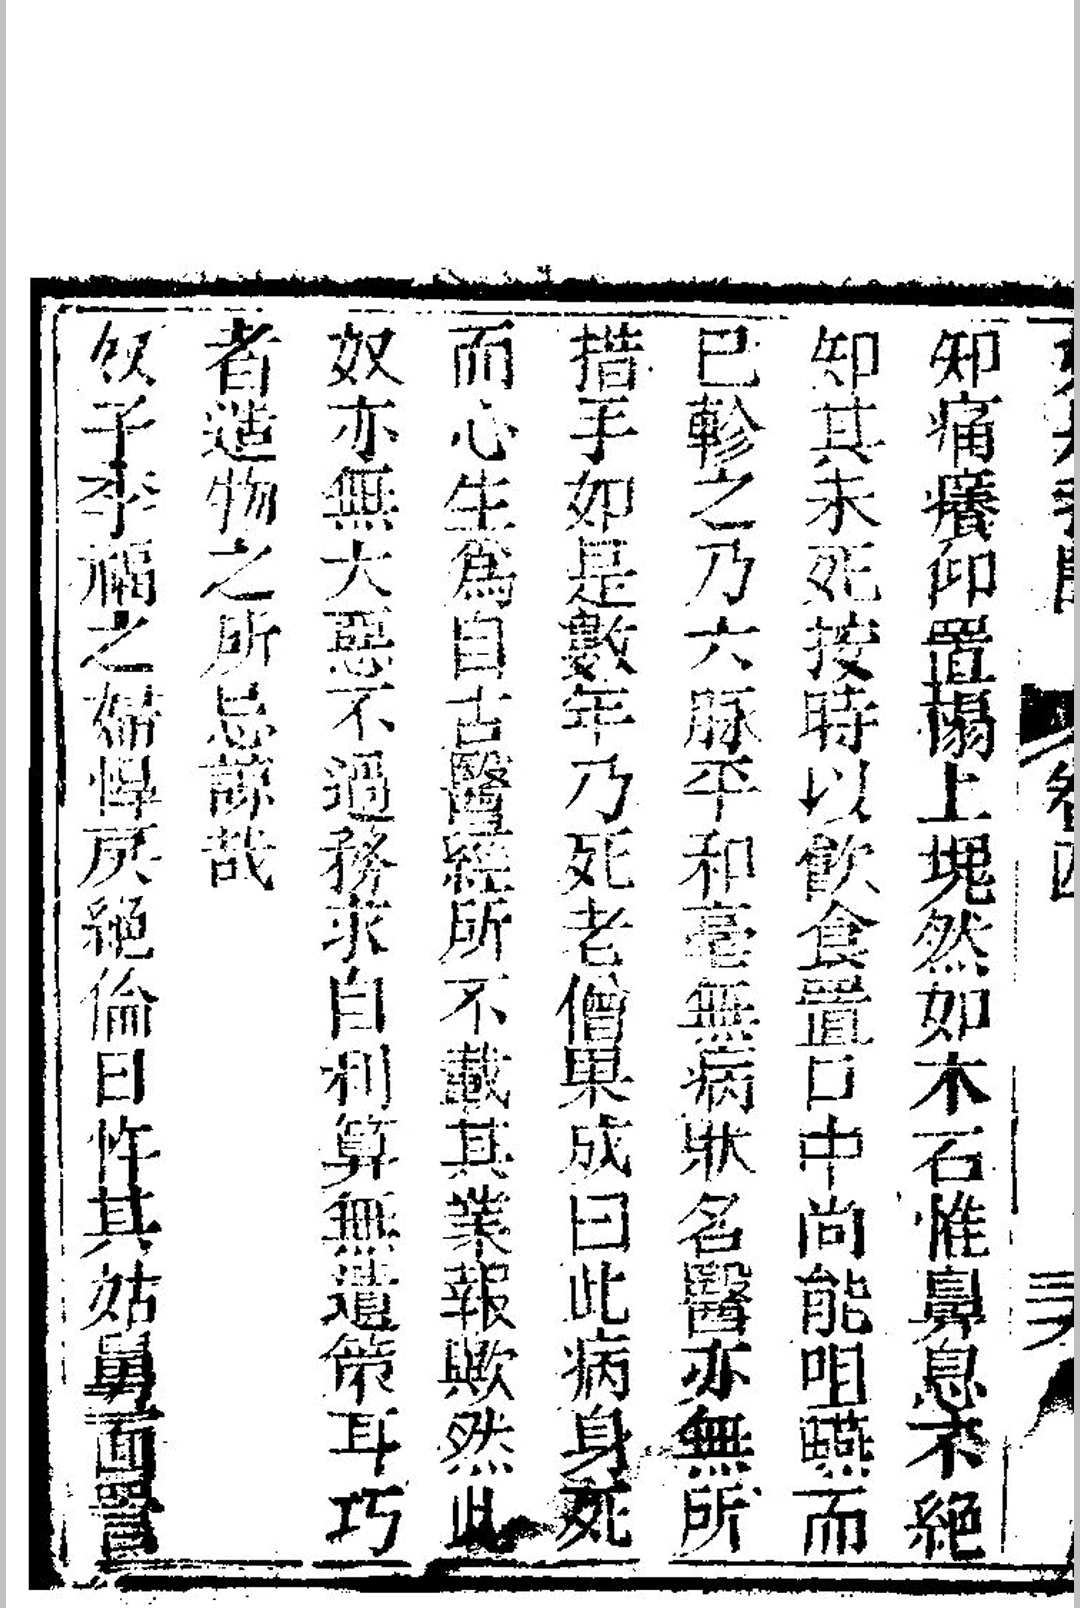 卷四
三六
知痛癢仰置榻上塊然如木石惟鼻息不絕
知其未死按時以飲食置口中尚能咀嚥而
已軫之乃六脉平和毫無病狀名醫亦無所
措手如是數年乃死老僧果成曰此病身死
而心生為自古醫經所不載其業報歟然此
奴亦無大惡不過務求自利算無遺策耳巧
者造物之所忌諒哉
奴子李福之婦悍戾絕倫日忤其姑舅面詈